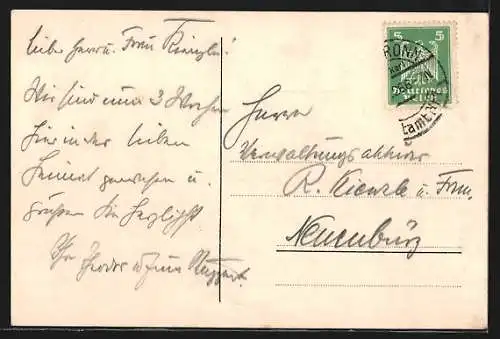 Liebe Herr u. Frau Kienzle!
Wir sind nun 3 Wochen
hier in der lieben
Heimat gewesen u.
grüßen Sie herzlichst
Ihr Theodor u. Frau
5 5
Deutsches
Reich
BONN
Herrn
Verwaltungsaktuar
R. Kienzle u. Frau
Neuenbürg